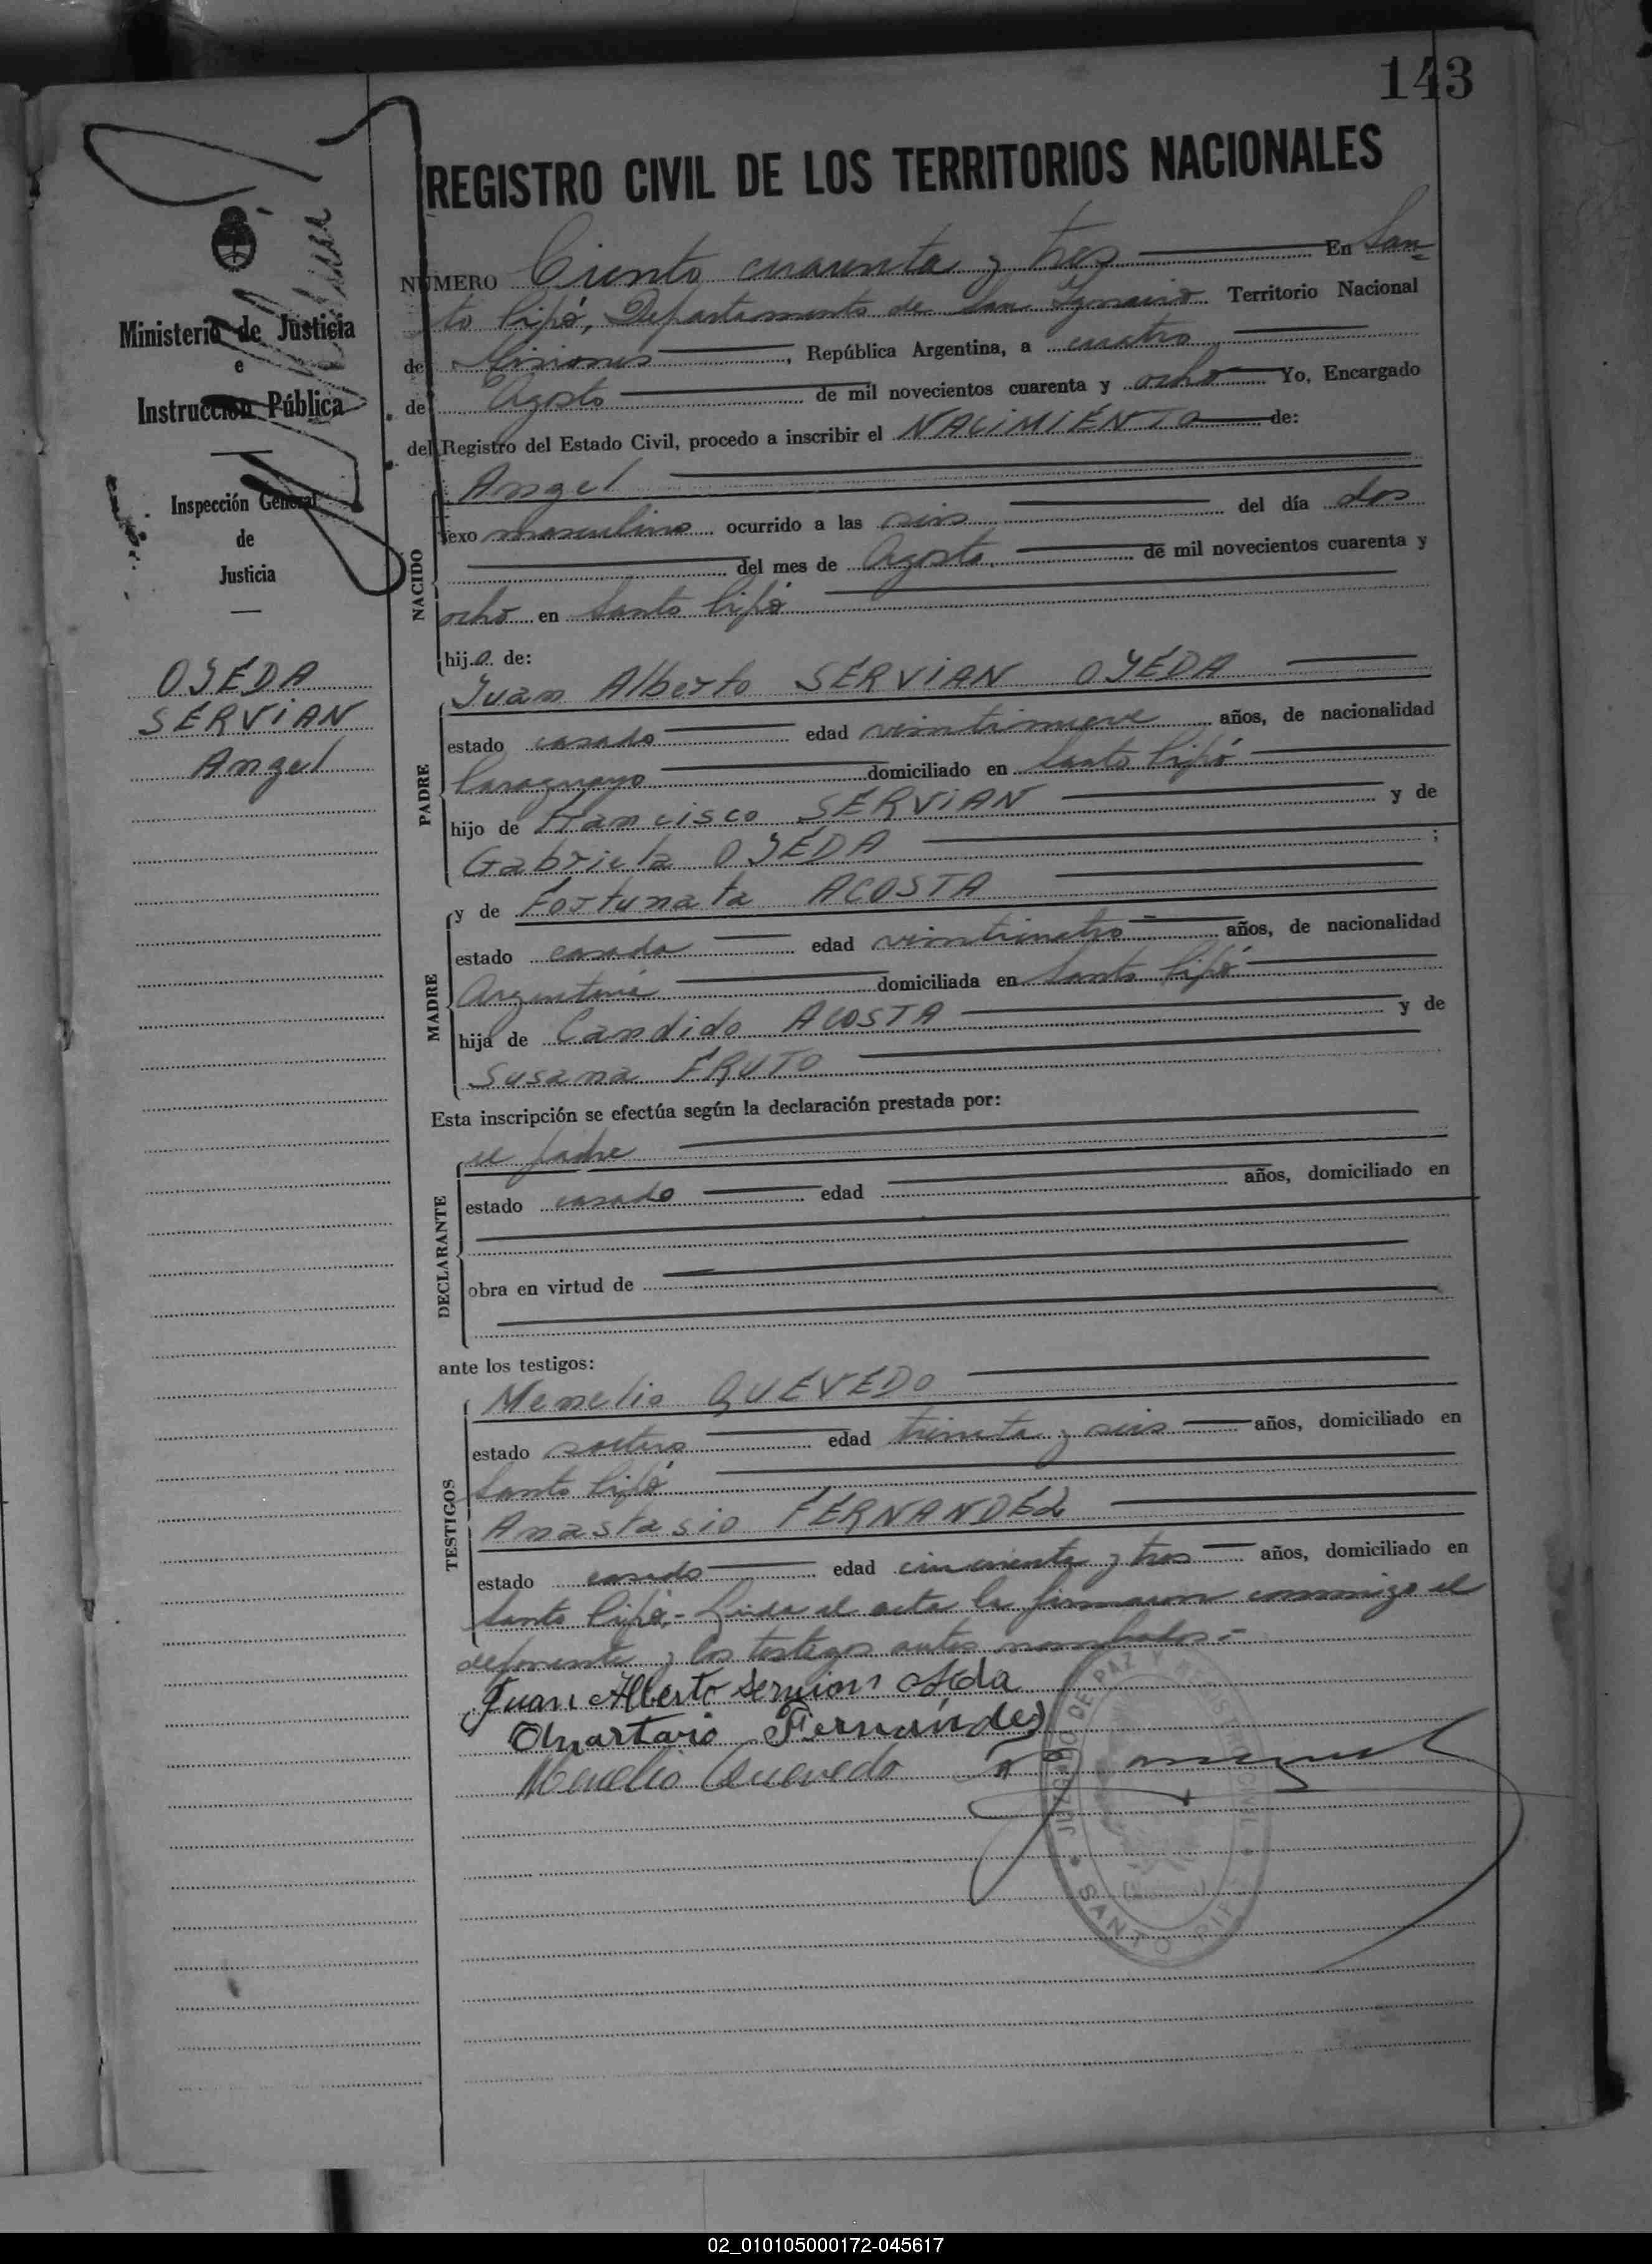 143
REGISTRO CIVIL DE LOS TERRITORIOS NACIONALES
NUMERO Ciento cuarenta y tres En San-
to Pipó, Departamento de San Ignacio Territorio Nacional
de Misiones, República Argentina, a cuatro
de Agosto de mil novecientos cuarenta y ocho Yo, Encargado
del Registro del Estado Civil, procedo a inscribir el NACIMIENTO de:
Ministerio de Justicia
e
Instrucción Pública
Inspección General
de
Justicia
OJEDA
SERVIAN
Angel
NACIDO
Angel
sexo masculino ocurrido a las seis del día dos
del mes de Agosto, de mil novecientos cuarenta y
ocho en Santo Pipó
hijo de:
PADRE
Juan Alberto SERVIAN OJEDA
estado casado edad veintinueve años, de nacionalidad
Paraguayo domiciliado en Santo Pipó
hijo de Francisco SERVIAN y de
Gabriela OJEDA ;
MADRE
y de Fortunata ACOSTA
estado casada edad veinticuatro años, de nacionalidad
Argentina domiciliada en Santo Pipó
hija de Candido ACOSTA y de
Susana FRUTO
Esta inscripción se efectúa según la declaración prestada por:
DECLARANTE
el padre
estado casado edad años, domiciliado en
obra en virtud de
ante los testigos:
TESTIGOS
Menelio QUEVEDO
estado soltero edad treinta y seis años, domiciliado en
Santo Pipó
Anastasio FERNANDEZ
estado casado edad cincuenta y tres años, domiciliado en
Santo Pipó.- Leida el acta la firmaron conmigo el
deponente y los testigos antes nombrados.-
Juan Alberto Servian
Fernandez
Menelio Quevedo
JUZGADO DE PAZ Y REGISTRO CIVIL
SANTO PIPÓ
(Misiones)
02_010105000172-045617